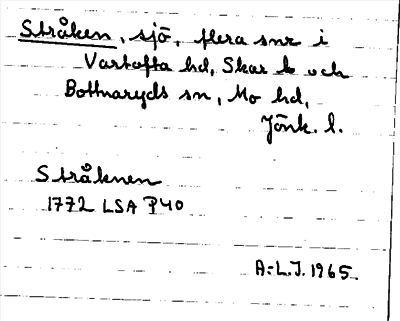 Stråken, sjö, flera snr i
Vartofta hd, Skar. l. och
Bottnaryds sn, Mo hd,
Jönk. l.
Stråknen
1772 LSA P40
A-L.J. 1965.